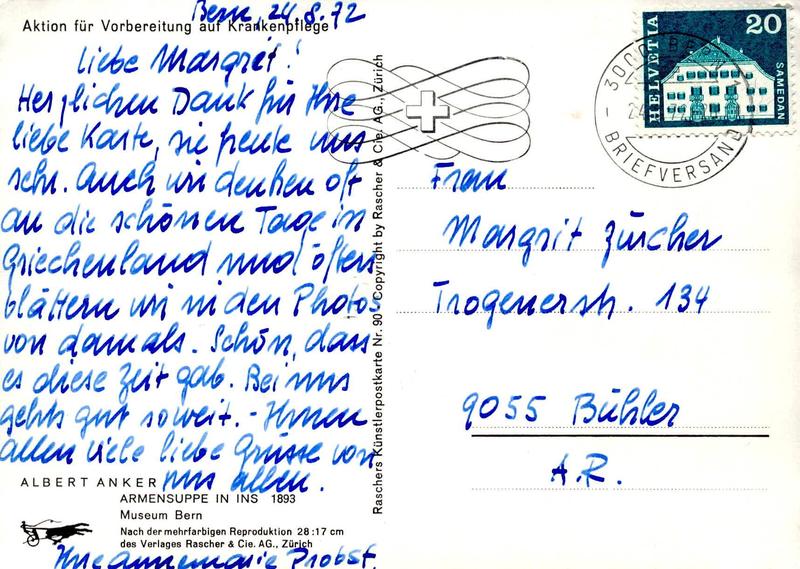 Bern, 24.8.72
Aktion für Vorbereitung auf Krankenpflege
Liebe Margrit!
Herzlichen Dank für Ihre
liebe Karte, sie freute uns
sehr. Auch wir denken oft
an die schönen Tage in
Griechenland und öfters
blättern wir in den Photos
von damals. Schön, dass
es diese Zeit gab. Bei uns
gehts gut soweit. - Ihnen
allen viele liebe Grüsse von
uns allen.
ALBERT ANKER
ARMENSUPPE IN INS 1893
Museum Bern
Nach der mehrfarbigen Reproduktion 28:17 cm
des Verlages Rascher & Cie. AG., Zürich
Ihre Annemarie Probst.
Raschers Künstlerpostkarte Nr. 90 Copyright by Rascher & Cie. AG., Zürich
HELVETIA
20
SAMEDAN
3000 BERN
BRIEFVERSAND
Frau
Margrit Zürcher
Trogenerstr. 134
9055 Bühler
A.R.